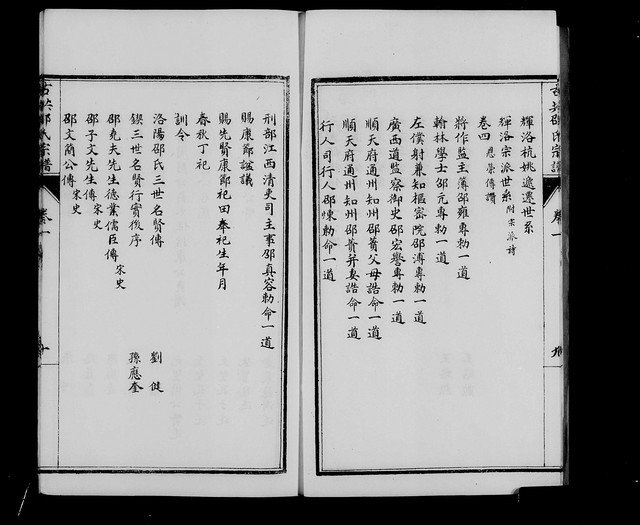 輝洛杭姚遞遷世系
輝洛宗派世系 附宗派詩
卷四 恩榮傳讚
將作監主薄邵雍專勅一道
翰林學士邵亢專勅一道
左僕射兼知樞密院邵溥專勅一道
廣西道監察御史邵宏譽專勅一道
順天府通州知州邵蕡父母誥命一道
順天府通州知州邵蕡并妻誥命一道
行人司行人邵煉勅命一道
刑部江西清吏司主事邵真容勅命一道
賜康節謚議
賜先賢康節祀田奉祀生年月
春秋丁祀
訓令
洛陽邵氏三世名賢傳 劉健
鍥三世名賢行實後序 孫應奎
邵堯夫先生德業儒臣傳 宋史
邵子文先生傳 宋史
邵文簡公傳 宋史
邵氏宗譜
卷一